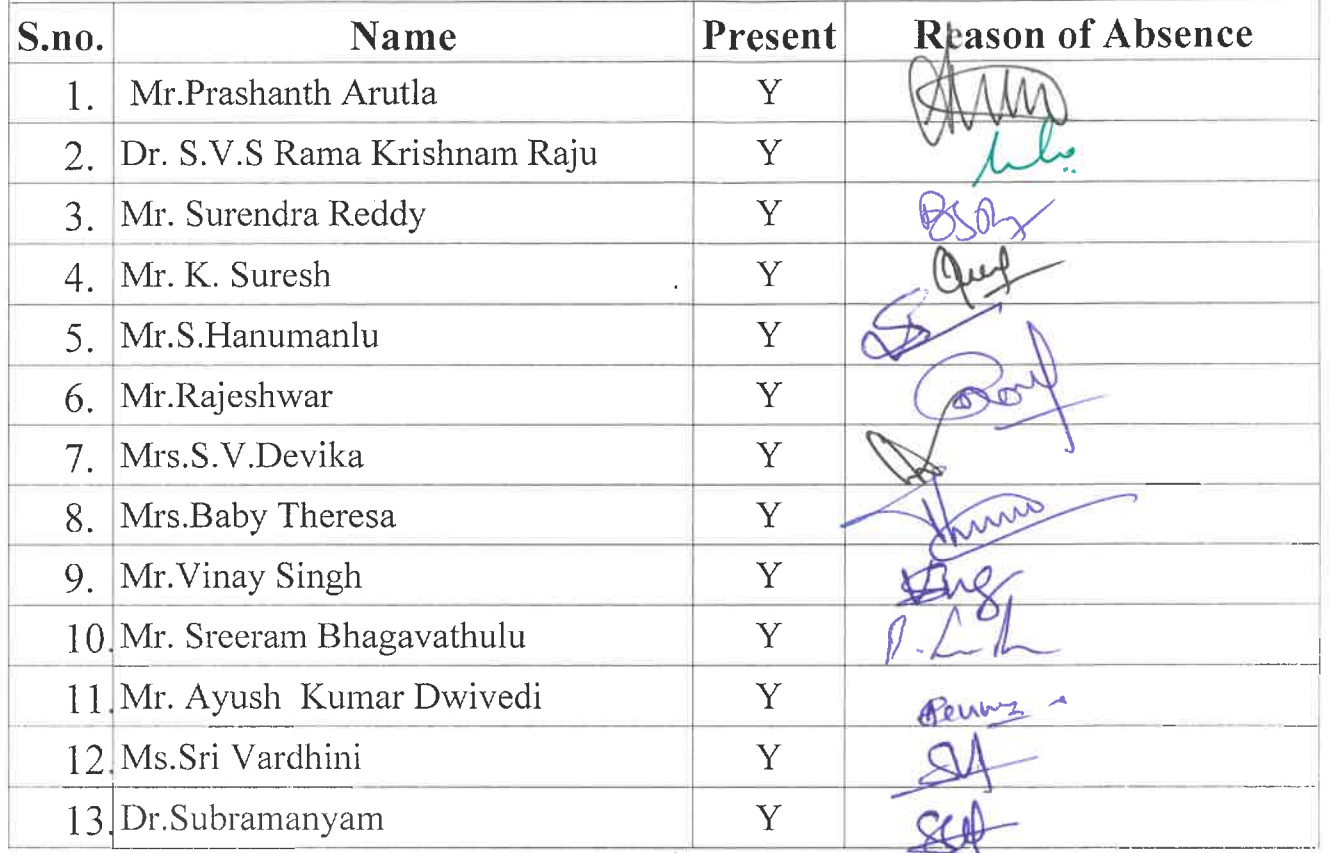 S.no. Name Present Reason of Absence
1. Mr.Prashanth Arutla Y
2. Dr. S.V.S Rama Krishnam Raju Y
3. Mr. Surendra Reddy Y
4. Mr. K. Suresh Y
5. Mr.S.Hanumanlu Y
6. Mr.Rajeshwar Y
7. Mrs.S.V.Devika Y
8. Mrs.Baby Theresa Y
9. Mr.Vinay Singh Y
10. Mr. Sreeram Bhagavathulu Y
11. Mr. Ayush Kumar Dwivedi Y
12. Ms.Sri Vardhini Y
13. Dr.Subramanyam Y